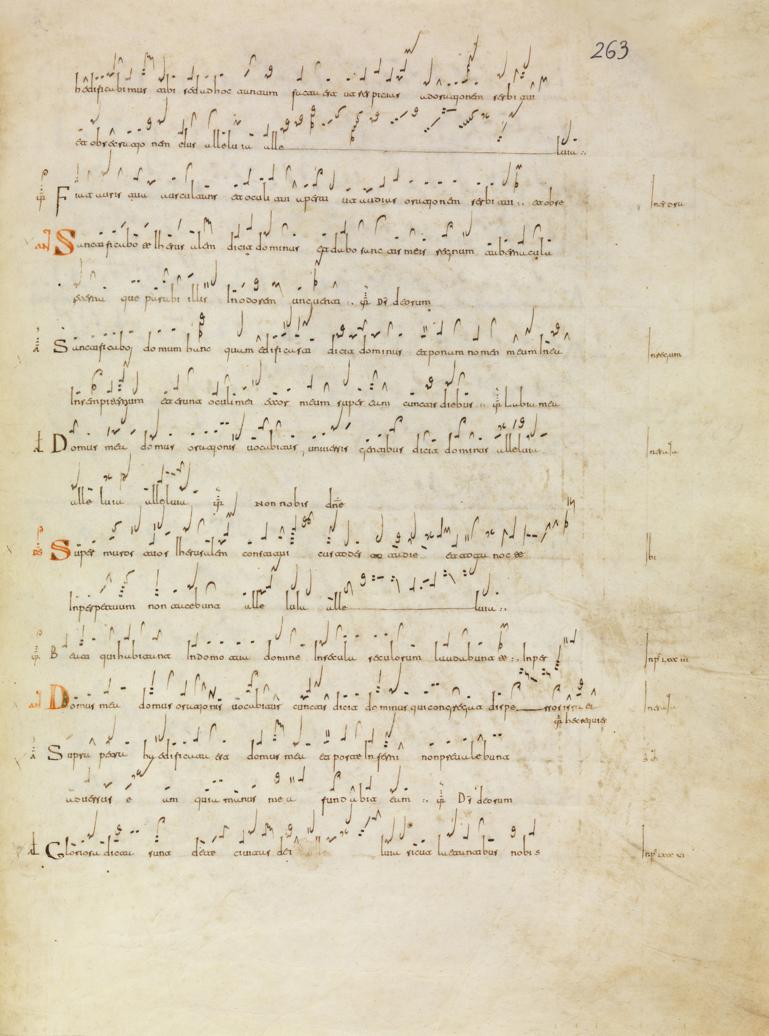 hedificabimus tibi sed ad hoc tantum facta est ut respicias ad orationem serbi tui
263
et obsecrationem eius alleluia alle luia :.
Fiat auris tua auscultans et oculi tui aperti ut audias orationem serbi tui :. et obse
Sanctificabo te Iherusalem dicit dominus et dabo sanctis meis regnum tabernacula
eterna que parabi illis In odorem unguenti :. Ds deorum
Sanctificabi domum hanc quam edificasti dicit dominus et ponam nomen meum In ea In regum
In sempiternum et erunt oculi mei et cor meum super eum cunctis diebus :. Labia mea
Domus mea domus orationis vocabitur universis gentibus dicit dominus alleluia
alle luia alleluia Non nobis dne
Super muros tuos Iherusalem constitui custodes tota die et tota nocte Ibi
In perpetuum non tacebunt alle alle luia :.
Beati qui habitant In domo tua domine In secula seculorum laudabunt te :. In per In ps lxxxiii
Domus mea domus orationis vocabitur cunctis dicit dominus qui congregat
hec requies
Supra petra hedificata est domus mea et porte Inferni non prevalebunt
adversus eam quia manus mea fundabit eum :. Ds deorum
Gloriosa dicta sunt de te civitas dei luia sicut letantibus nobis In ps lxxxvi